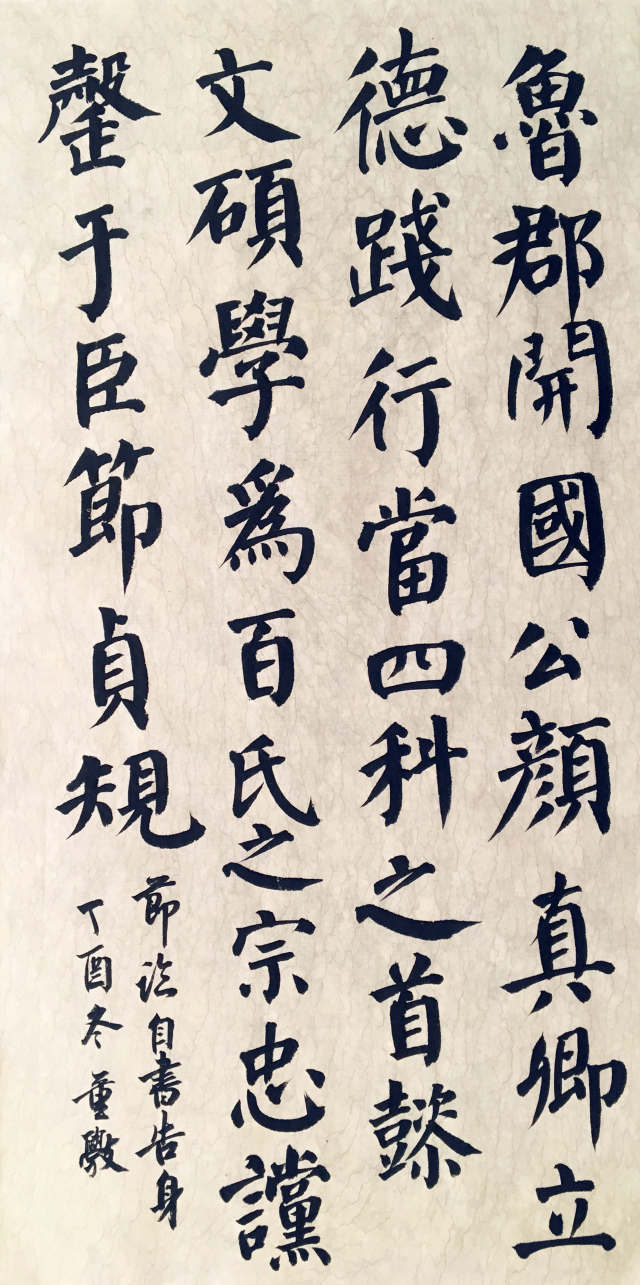 魯郡開國公顔真卿立
德踐行當四科之首懿
文碩學爲百氏之宗忠讜
罄于臣節貞規
節臨自書告身
丁酉冬董